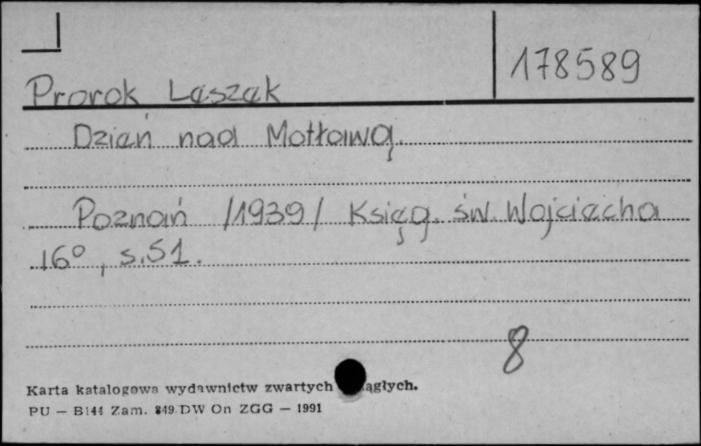 178589
Prorok Leszek
Dzień nad Motławą.
Poznań /1939/ Księg. św. Wojciecha
16°, s.51.
8
Karta katalogowa wydawnictw zwartych ągłych.
PU — B144 Zam. 849 DW On ZGG — 1991